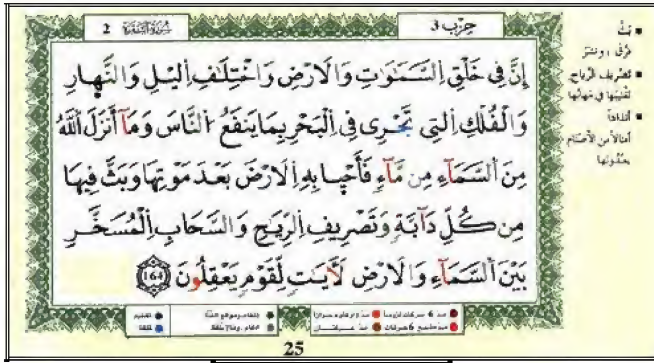 سُورَةُ البَقَرَة 2
حِزْب 3
إِنَّ فِي خَلْقِ اِ۬لسَّمَٰوَٰتِ وَالَارْضِ وَاخْتِلَٰفِ اِ۬ليْلِ وَالنَّهارِ
وَالْفُلْكِ اِ۬لتِي تَجْرِي فِي اِ۬لْبَحْرِ بِمَا يَنفَعُ اُ۬لنَّاسَ وَمَآ أَنزَلَ اَ۬للَّهُ
مِنَ اَ۬لسَّمَآءِ مِن مَّآءٖ فَأَحْيا بِهِ اِ۬لَارْضَ بَعْدَ مَوْتِهَا وَبَثَّ فِيهَا
مِن كُلِّ دَآبَّةٖ وَتَصْرِيفِ اِ۬لرِّيَٰحِ وَالسَّحَابِ اِ۬لْمُسَخَّرِ
بَيْنَ اَ۬لسَّمَآءِ وَالَارْضِ لَأٓيَٰتٖ لِّقَوْمٖ يَعْقِلُونَ 164
■ بَثَّ
فرَّق ونشر
■ تصريف الرياح
تقليبها في مهابّها
■ أنداداً
أمثالاً من الأصنام
يعبدونها
25